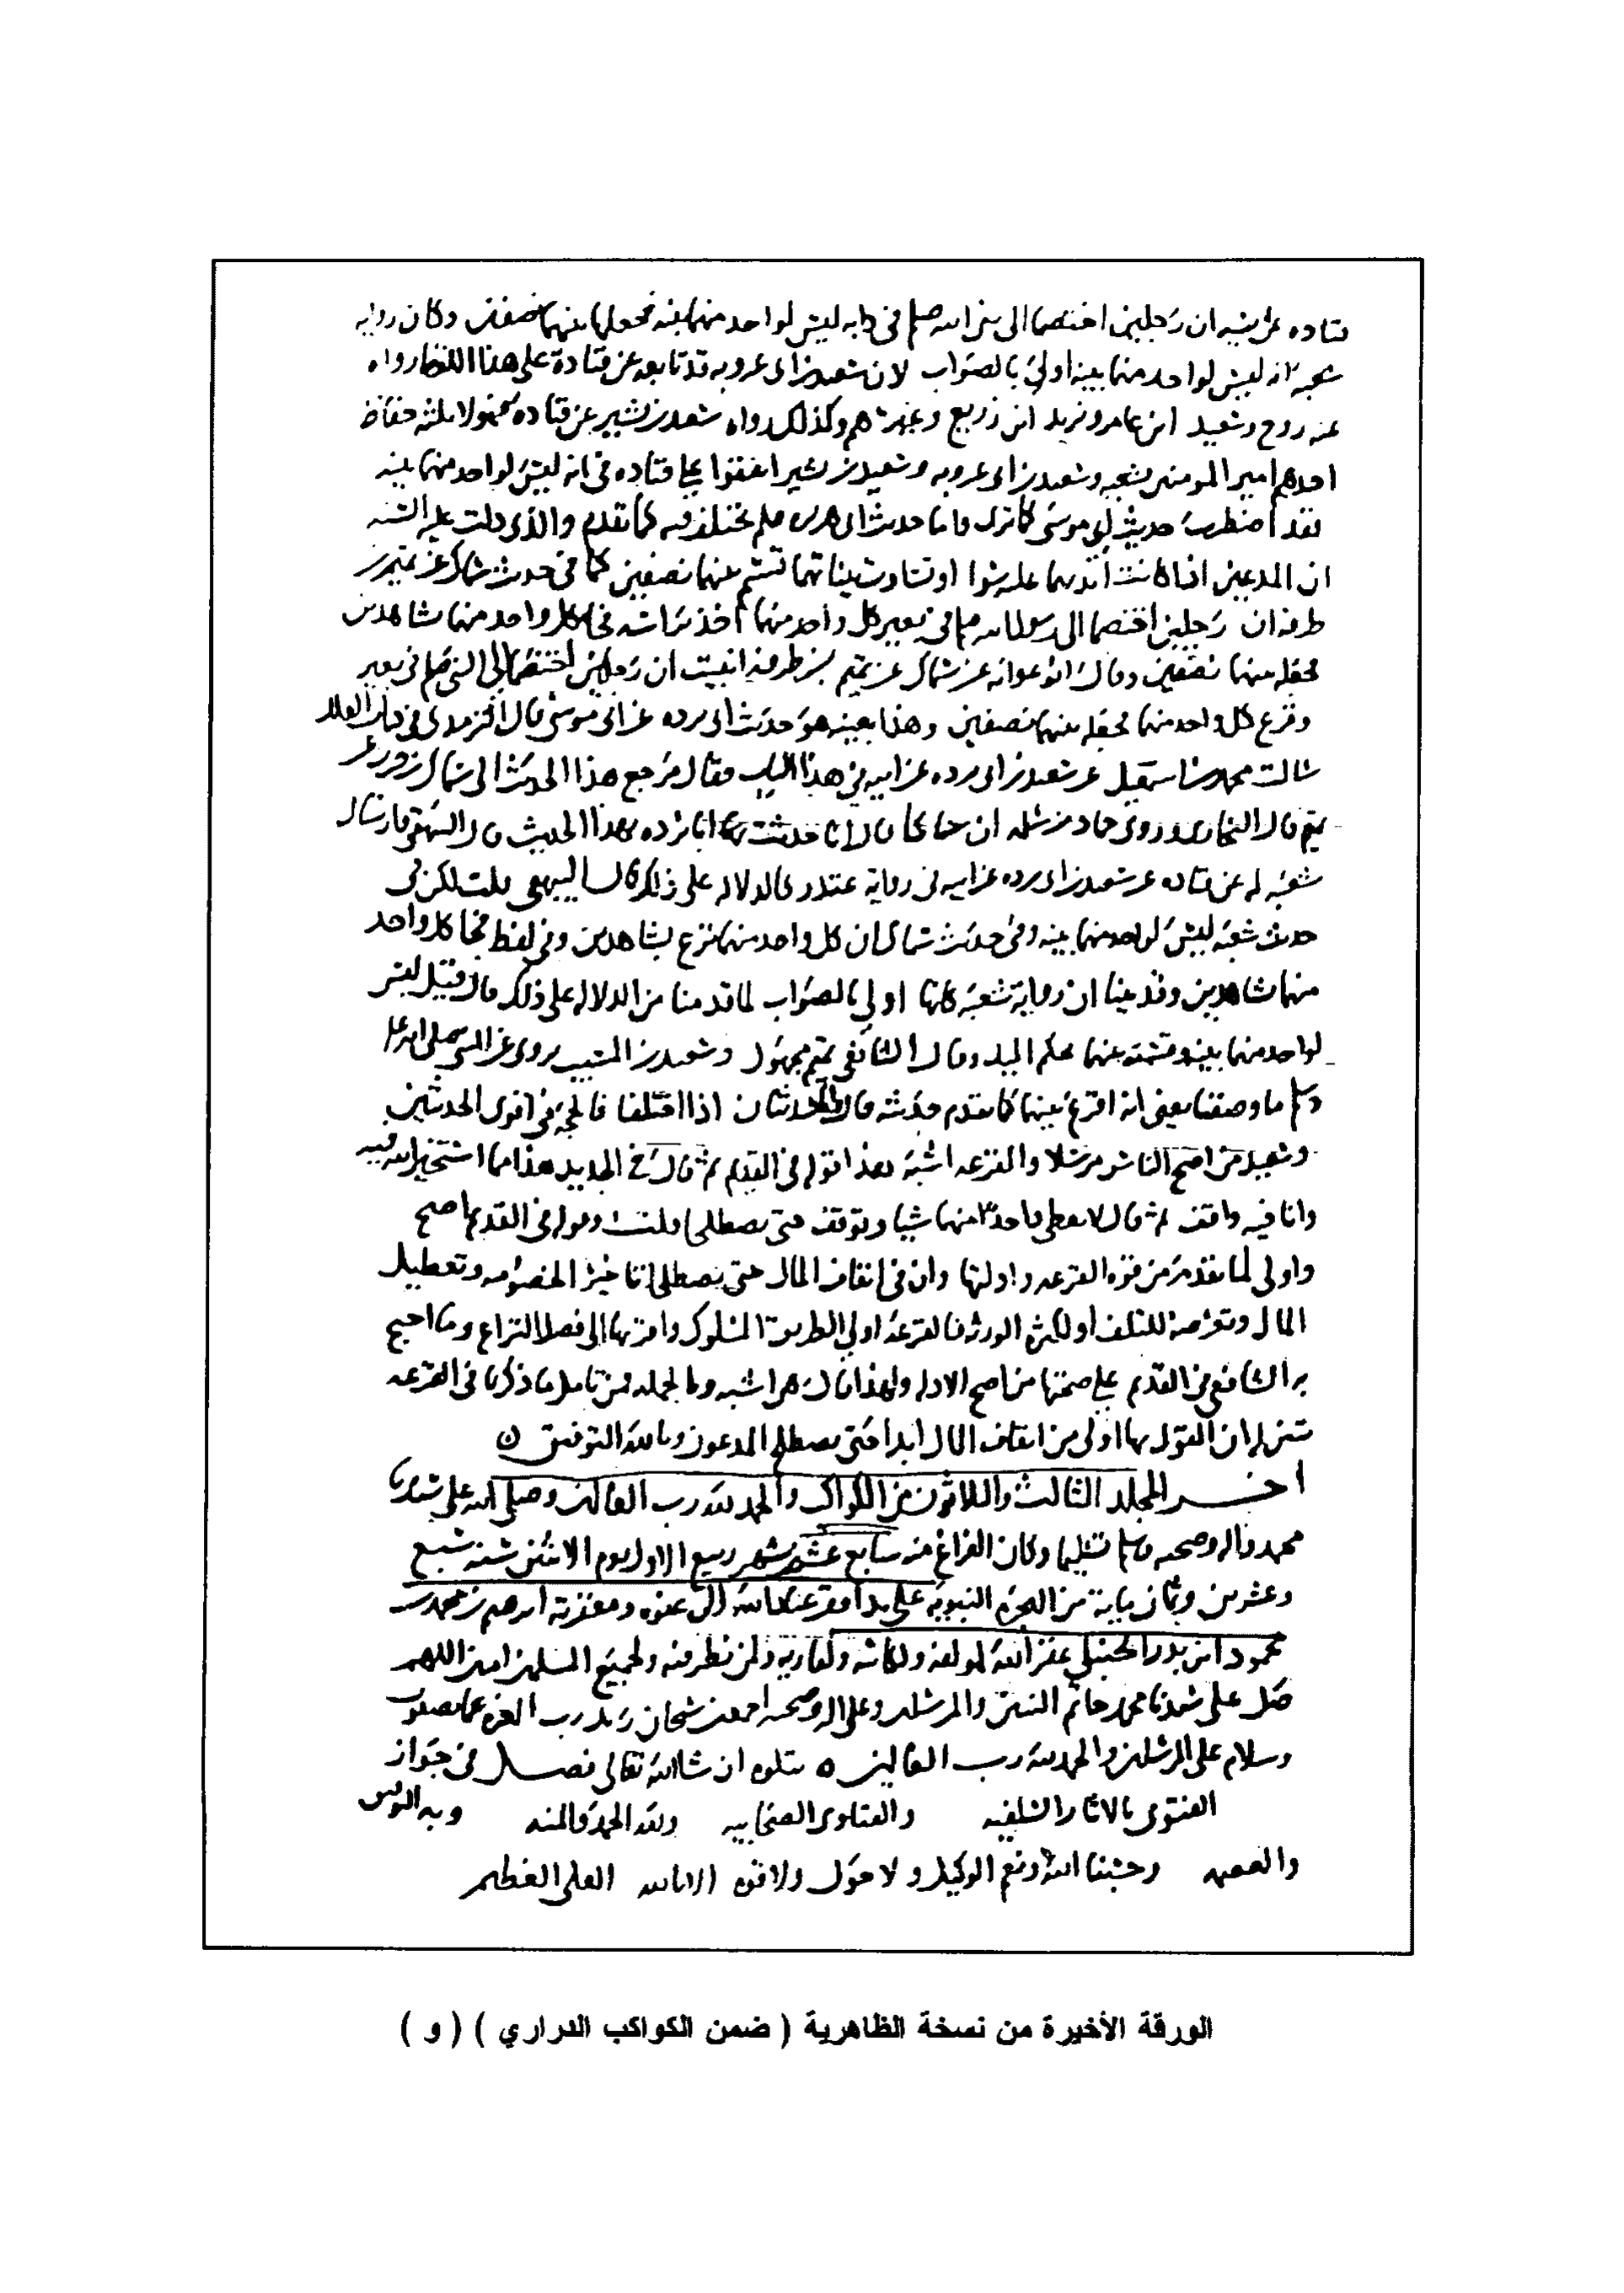 قتاده عن ابيه ان رجلين اختصما الى نبي الله صلم في دابه ليس لواحد منهما بينه فجعلها بينهما نصفين وكان روايه
شعبة انه ليس لواحد منهما بينه اولى بالصواب لان سعيد بن ابي عروبه قد تابعه عن قتادة على هذا اللفظ رواه
عنه روح وسعيد ابن عامر ويزيد ابن زريع وغيرهم وكذلك رواه سعيد بن بشير عن قتاده فهولا ثلثه حفاظ
احدهم امير المومنين شعبه وسعيد بن ابي عروبه وسعيد بن بشير اتفقوا على قتاده في انه ليس لواحد منهما بينه
فقد اضطرب حديث ابي موسى كما ترى واما حديث ابي هريره فلم يختلف فيه كما تقدم والذي دلت عليه السنه
ان المدعيين اذا كانت ايديهما عليه سوا او تساوت بيناتهما قسم بينهما نصفين كما في حديث سماك عن تميم بن
طرفه ان رجلين اختصما الى رسول الله صلم في بعير كل واحد منهما اخذ براسه فجا كل واحد منهما شاهدين
فجعله بينهما نصفين وقال ابو عوانه عن سماك عن تميم بن طرفه انبيت ان رجلين اختصما الى النبي صلم في بعير
ونزع كل واحد منهما فجعله بينهما نصفين وهذا بعينه هو حديث ابي برده عن ابي موسى قال الترمذي في كتاب العلل
سالت محمد بن اسمعيل عن سعيد بن ابي برده عن ابيه في هذا الباب فقال مرجع هذا الحديث الى سماك بن حرب عن
تميم قال البخاري وروى حماد بن سلمه ان سماكا قال انا حدثت ابا برده بهذا الحديث قال البيهقي وارسال
شعبة له عن قتاده عن سعيد بن ابي برده عن ابيه في رواية غندر كالدلاله على ذلك قال البيهقي قلت لكن في
حديث شعبة ليس لواحد منهما بينه وفي حديث سماك ان كل واحد منهما نزع بشاهدين وفي لفظ فجا كل واحد
منهما شاهدين وقد بينا ان رواية شعبه كلها اولى بالصواب لما قدمنا من الدلاله على ذلك قال فقيل ليس
لواحد منهما بينه وقسمته بينهما بحكم اليد وقال الشافعي تميم مجهول وسعيد بن المسيب يروي عن النبي صلى الله عليه
وسلم ما وصفنا يعني انه اقرع بينهما كما تقدم حديثه قال والحديثان اذا اختلفا فالحجه في اقوى الحديثين
وسعيد من اصح الناس مرسلا والقرعه اشبه هذا قوله في القديم ثم قال في الجديد هذا مما استخير الله فيه
وانا فيه واقف ثم قال لا يعطى واحد منهما شيا ويوقف حتى يصطلحا قلت وقوله في القديم اصح
واولى لما تقدم من قوة القرعه وادلتها وان في ايقاف المال حتى يصطلحا تاخير الخصومه وتعطيل
المال وتعرضه للتلف او لكثره الورثه فالقرعة اولى الطريق المسلوك واقربها الى فصل النزاع وما احتج
به الشافعي في القديم على صحتها من اصح الادله ولهذا قال هي اشبه وبالجمله فمن تامل ما ذكرنا في القرعه
تبين له ان القول بها اولى من ايقاف المال ابدا حتى يصطلح المدعون وبالله التوفيق ٥
اخـــر المجلد الثالث والثلاثون من الكواكب والحمد لله رب العالمين وصلى الله على سيدنا
محمد واله وصحبه وسلم تسليما وكان الفراغ منه سابع عشر شهر ربيع الاول يوم الاثنين سنه سبع
وعشرين وثمان ماية من الهجرة النبويه على يد افقر عباد الله الى عفوه ومغفرته ابرهيم بن محمد بن
محمود ابن بدر الحنبلي غفر الله لمولفه ولكاتبه ولقاريه ولمن نظر فيه ولجميع المسلمين امين اللهم
صل على سيدنا محمد خاتم النبيين والمرسلين وعلى اله وصحبه اجمعين سبحان ربك رب العزه عما يصفون
وسلام على المرسلين والحمد لله رب العالمين ٥ يتلوه ان شا الله تعالى فصــل في جواز
الفتوى بالاثار السلفيه والفتاوى الصحابيه ولله الحمد والمنه وبه التوفيق
والعصمه وحسبنا الله ونعم الوكيل ولا حول ولا قوه الا بالله العلي العظيم
الورقة الأخيرة من نسخة الظاهرية ( ضمن الكواكب الدراري ) ( و )